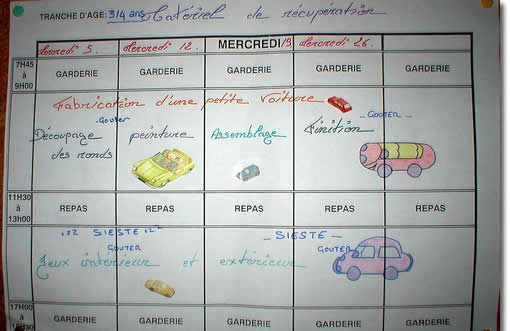 TRANCHE D'AGE: 3/4 ans Matériel de récupération
Mercredi 5. Mercredi 12. MERCREDI 19 Mercredi 26.
7H45 à 9H00 GARDERIE GARDERIE GARDERIE GARDERIE GARDERIE
Fabrication d'une petite voiture
Gouter - GOUTER -
Découpage des ronds peinture Assemblage Finition
11H30 à 13h00 REPAS REPAS REPAS REPAS REPAS
SIESTE - SIESTE -
GOUTER GOUTER
Jeux intérieur et extérieur
17H00 à GARDERIE GARDERIE GARDERIE GARDERIE GARDERIE